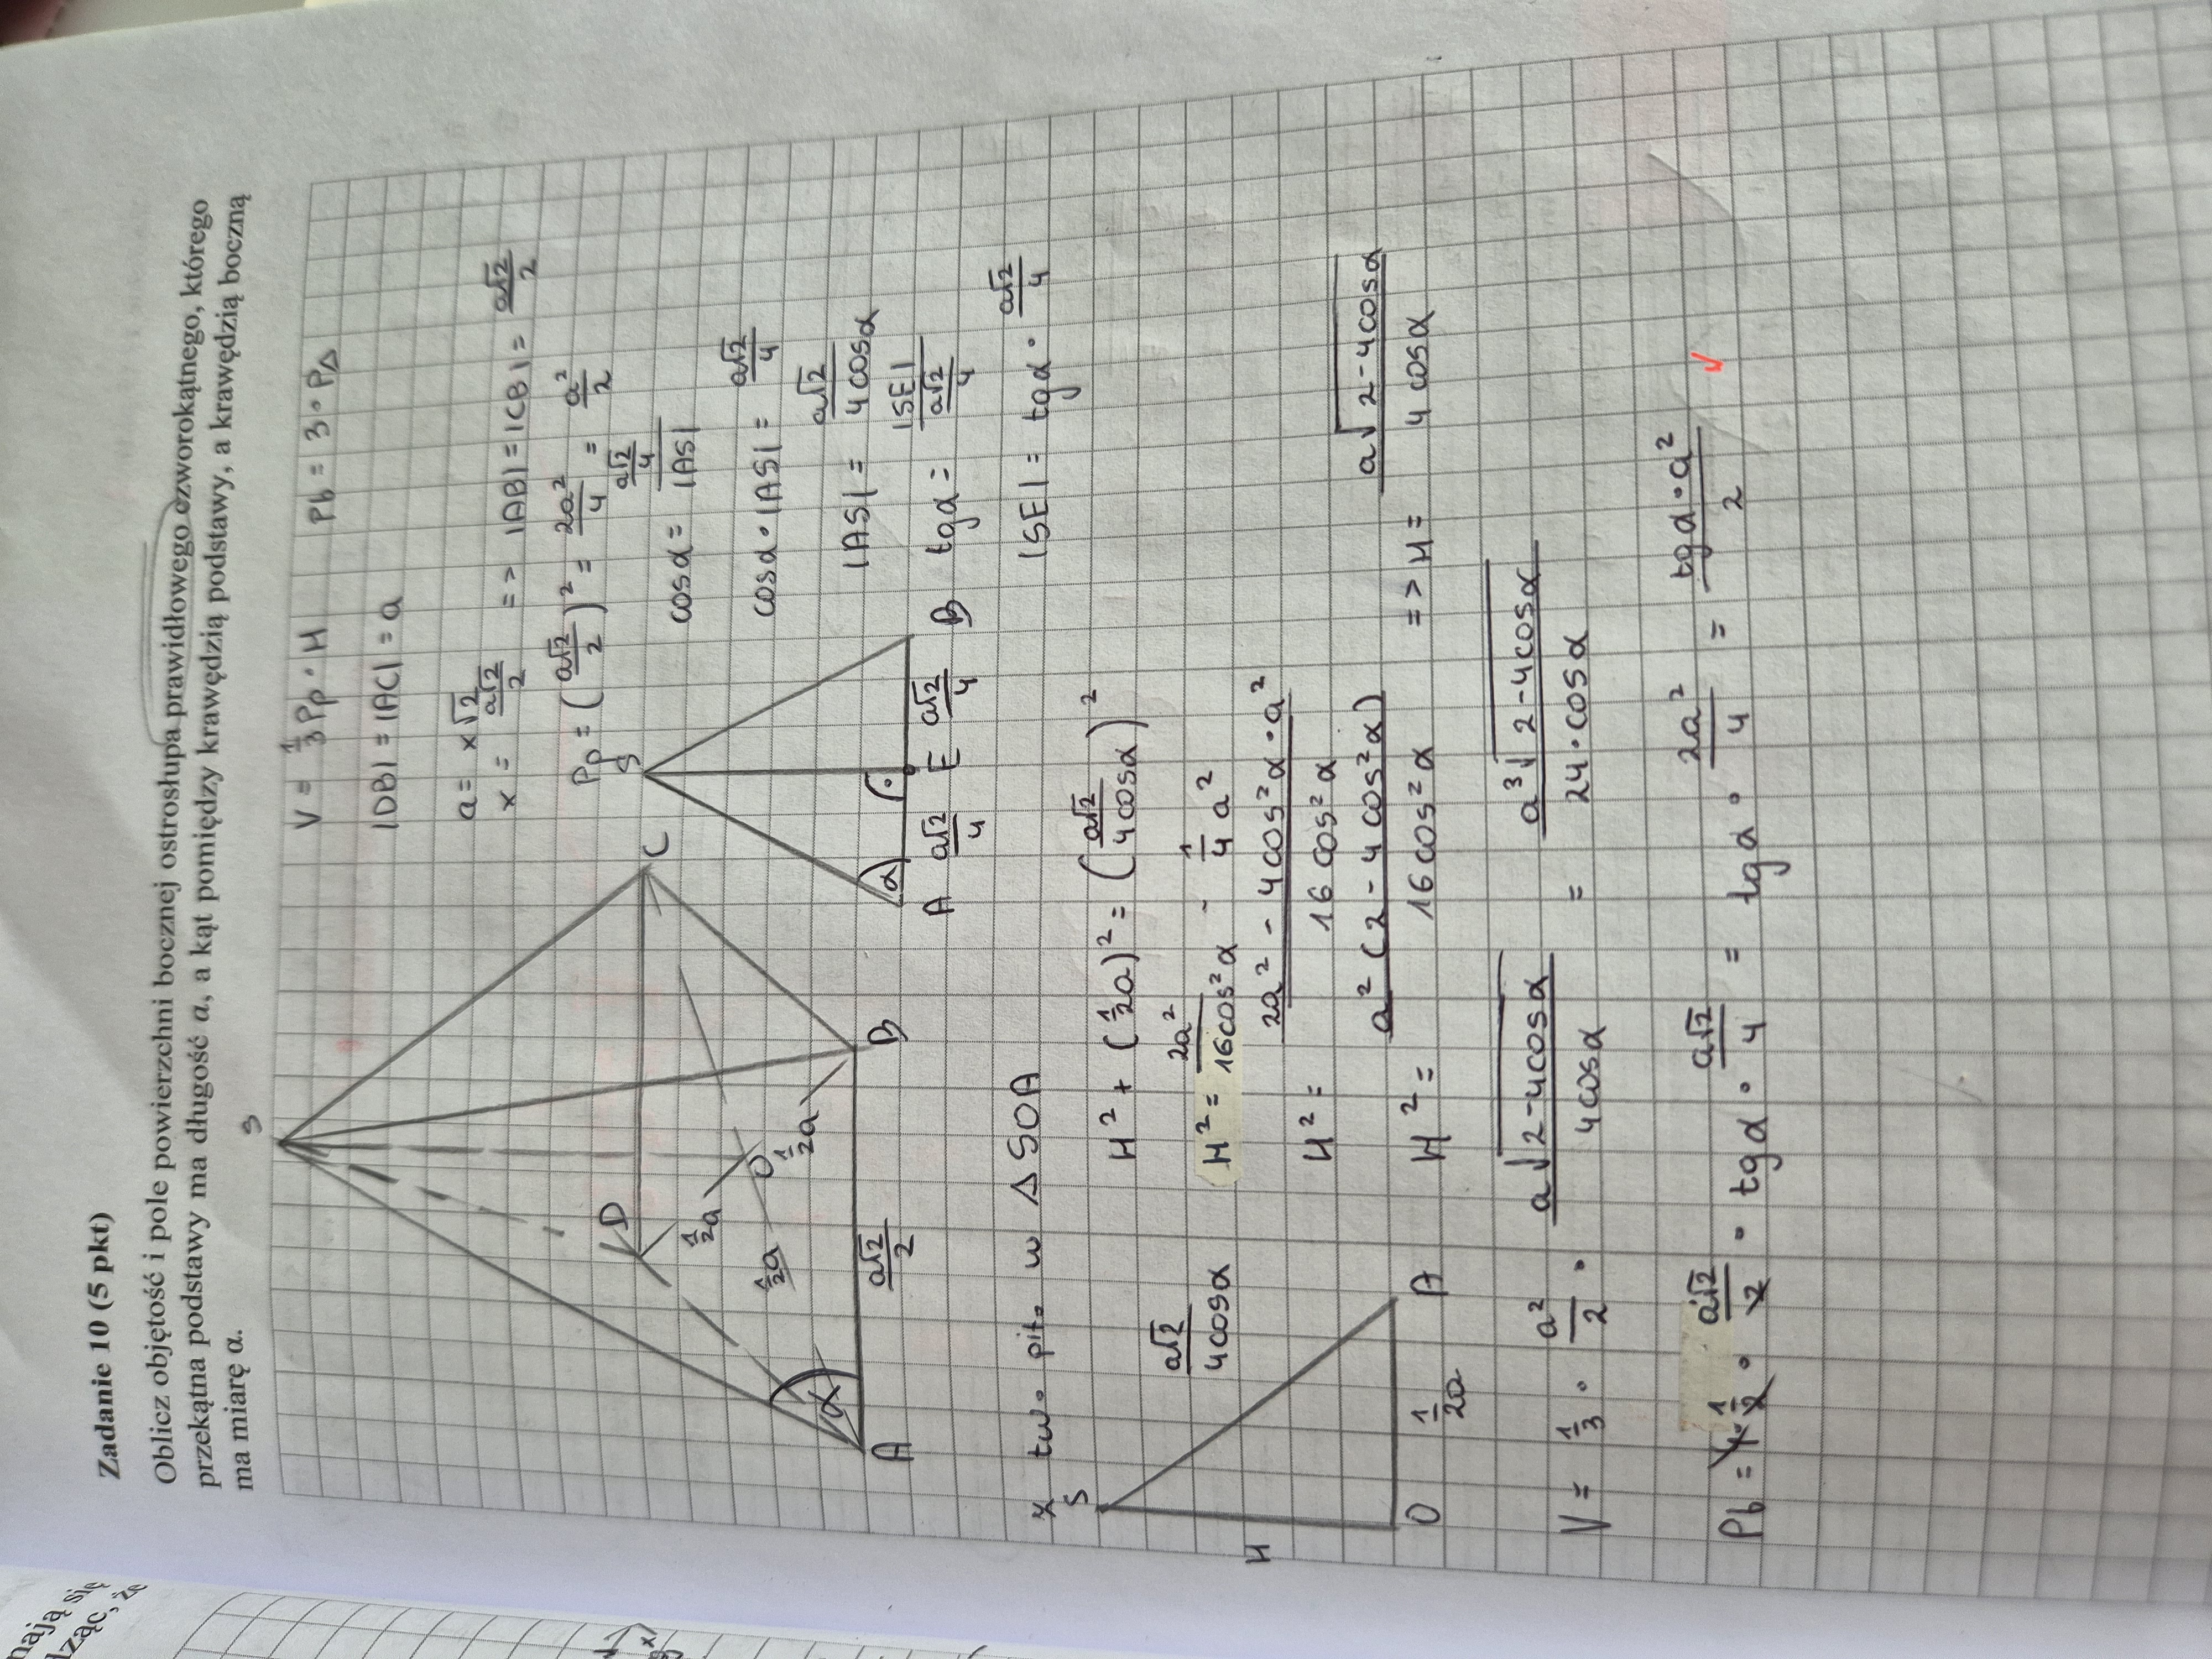 Zadanie 10 (5 pkt)
Oblicz objętość i pole powierzchni bocznej ostrosłupa prawidłowego czworokątnego, którego
przekątna podstawy ma długość a, a kąt pomiędzy krawędzią podstawy, a krawędzią boczną
ma miarę α.
S
D
C
O
A
B
α
1/2a
1/2a
1/2a
a√2/2
V = 1/3 Pp · H Pb = 3 · P△
|DB| = |AC| = a
a = x√2
x = a√2/2 => |AB| = |CB| = a√2/2
Pp = (a√2/2)² = 2a²/4 = a²/2
S
α
A a√2/4 E a√2/4 B
cosα = (a√2/4)/|AS|
cosα · |AS| = a√2/4
|AS| = a√2/4cosα
tgα = |SE|/(a√2/4)
|SE| = tgα · a√2/4
z tw. pit. w △SOA
S
H
a√2/4cosα
O 1/2a A
H² + (1/2a)² = (a√2/4cosα)²
H² = 2a²/16cos²α - 1/4 a²
H² = (2a² - 4cos²α · a²)/16cos²α
H² = a²(2 - 4cos²α)/16cos²α => H = a√(2-4cosα)/4cosα
V = 1/3 · a²/2 · a√(2-4cosα)/4cosα = a³√(2-4cosα)/24·cosα
Pb = 4 · 1/2 · a√2/2 · tgα · a√2/4 = tgα · 2a²/4 = tgα·a²/2
mają się
dząc, że